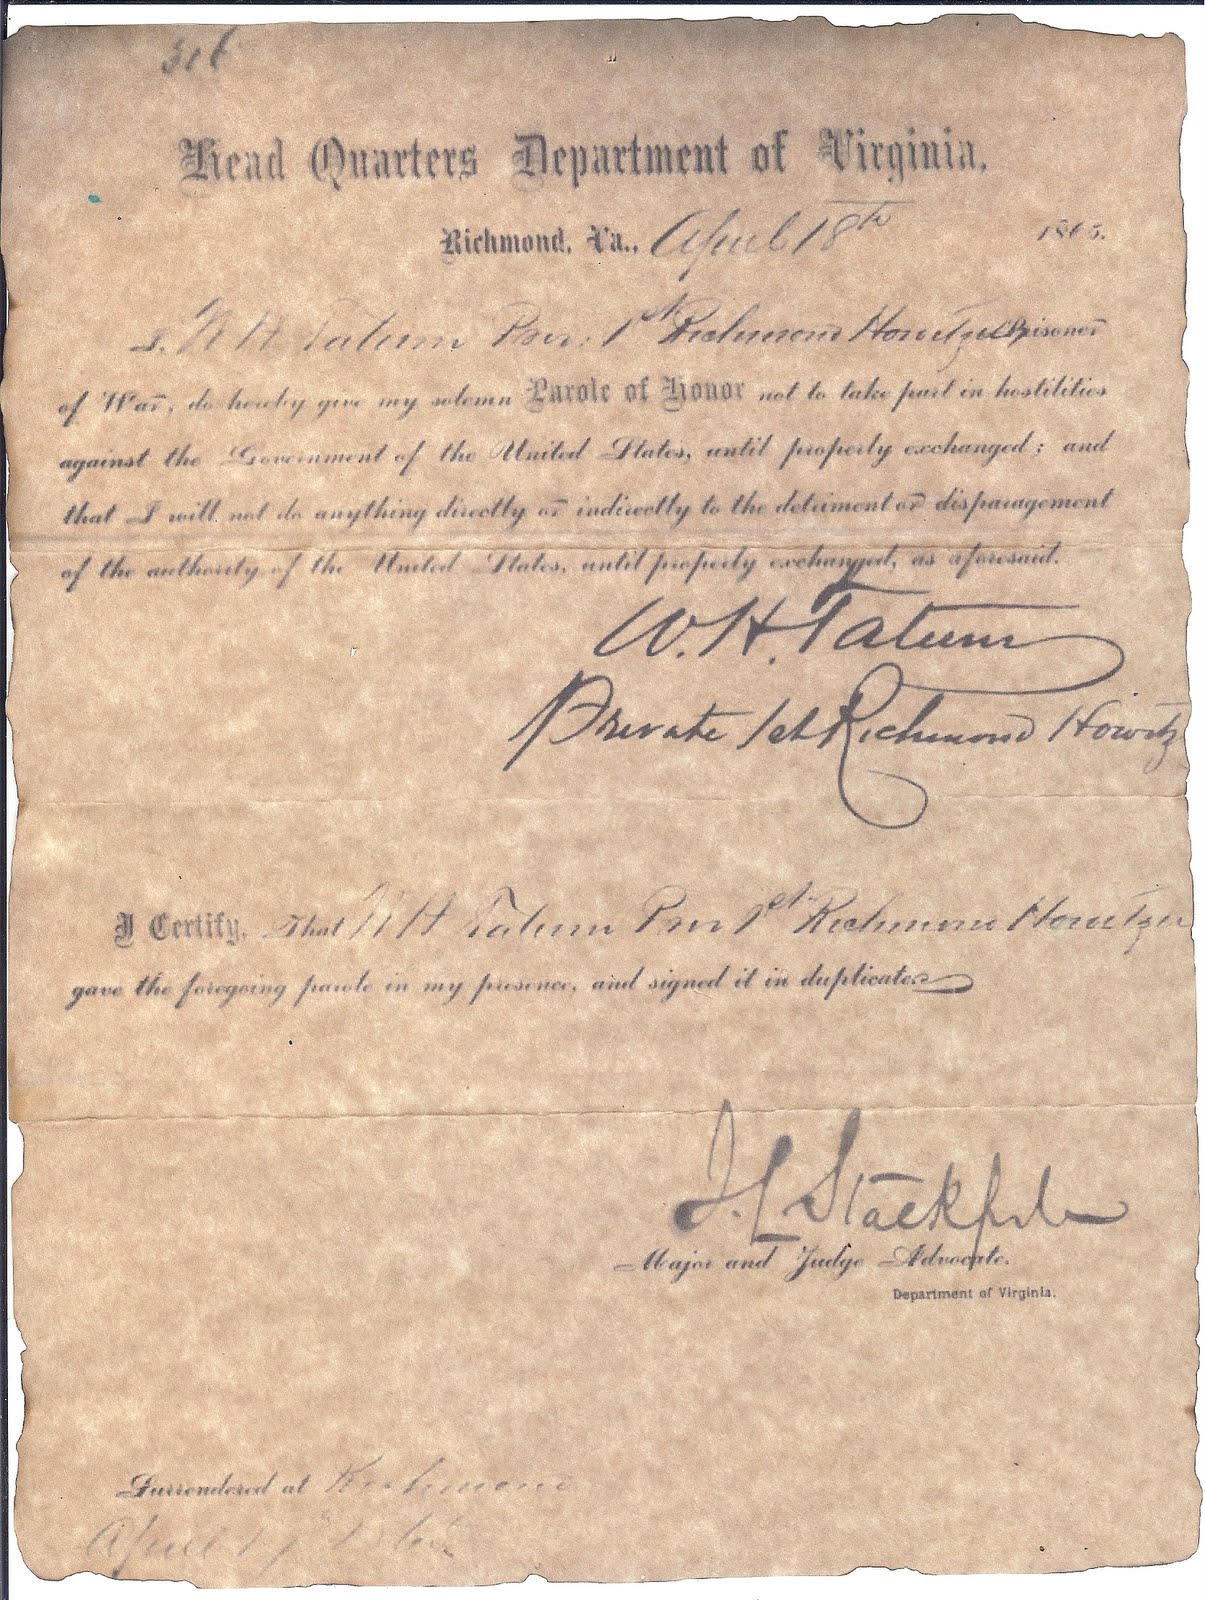 316
Head Quarters Department of Virginia,
Richmond, Va., April 18th 1865.
I, W H Tatum Priv. 1st Richmond Howitzer Prisoner
of War, do hereby give my solemn Parole of Honor not to take part in hostilities
against the Government of the United States, until properly exchanged; and
that I will not do anything directly or indirectly to the detriment or disparagement
of the authority of the United States, until properly exchanged, as aforesaid.
W. H. Tatum
Private 1st Richmond Howitz
I Certify, That W H Tatum Priv 1st Richmond Howitzer
gave the foregoing parole in my presence, and signed it in duplicate.
J. L Stackpole
Major and Judge Advocate.
Department of Virginia.
Surrendered at Richmond
April 17th 1865